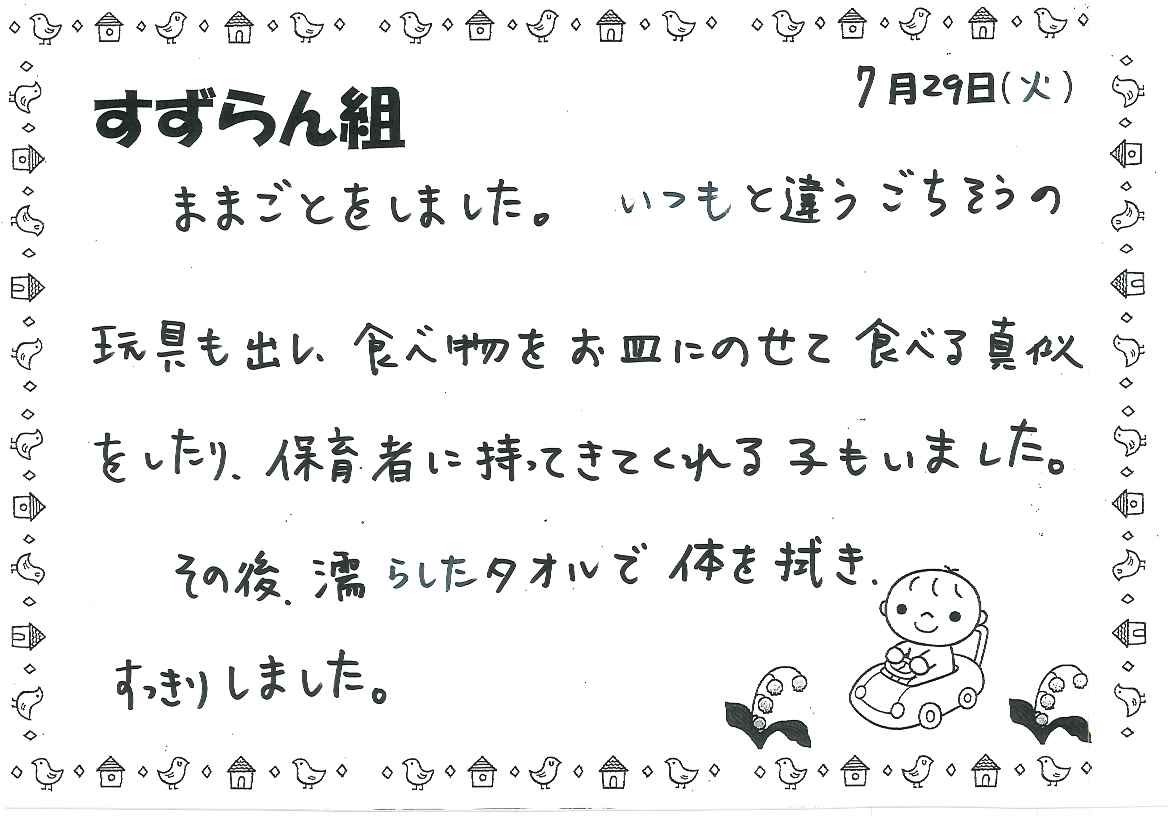 7月29日(火)
すずらん組
ままごとをしました。 いつもと違うごちそうの
玩具も出し、食べ物をお皿にのせて食べる真似
をしたり、保育者に持ってきてくれる子もいました。
その後、濡らしたタオルで体を拭き、
すっきりしました。